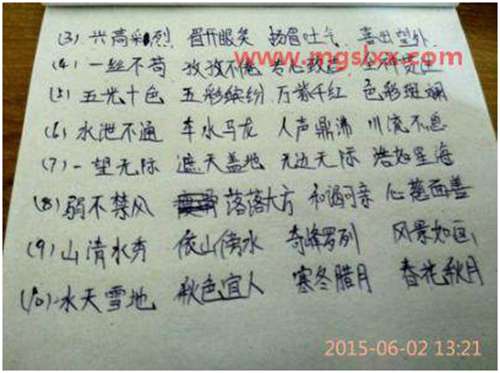 (3) 兴高彩烈 眉开眼笑 扬眉吐气 喜出望外
www.mgslxx.com
(4) 一丝不苟 孜孜不倦 专心致志
(5) 五光十色 五彩缤纷 万紫千红 色彩斑斓
(6) 水泄不通 车水马龙 人声鼎沸 川流不息
(7) 一望无际 遮天盖地 无边无际 浩如星海
(8) 弱不禁风 落落大方 和谒可亲 心慈面善
(9) 山清水秀 依山傍水 奇峰罗列 风景如画
(10) 水天雪地 秋色宜人 寒冬腊月 春花秋月
2015-06-02 13:21